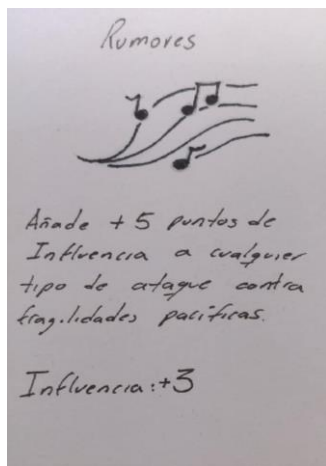 Rumores
Añade +5 puntos de
Influencia a cualquier
tipo de ataque contra
fragilidades pacíficas.
Influencia: +3